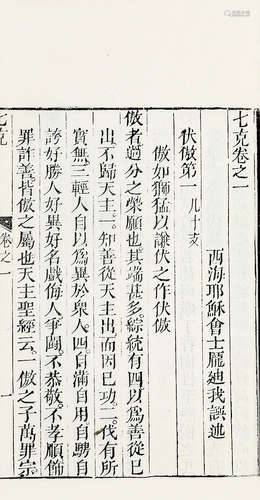 七克卷之一
西海耶穌會士龐迪我譔述
伏傲第一 凡十支
傲如獅猛以謙伏之作伏傲
傲者過分之榮願也其端甚多綜統有四以為善從巳
出不歸天主一知善從天主出而因巳功二伐有所
實無三輕人自以為異於衆人四自滿自用自騁自
誇好勝人好異好名戲侮人爭鬭不恭敬不孝順飾
罪詐善皆傲之屬也天主聖經云一傲之子萬罪宗
七克 卷之一 一